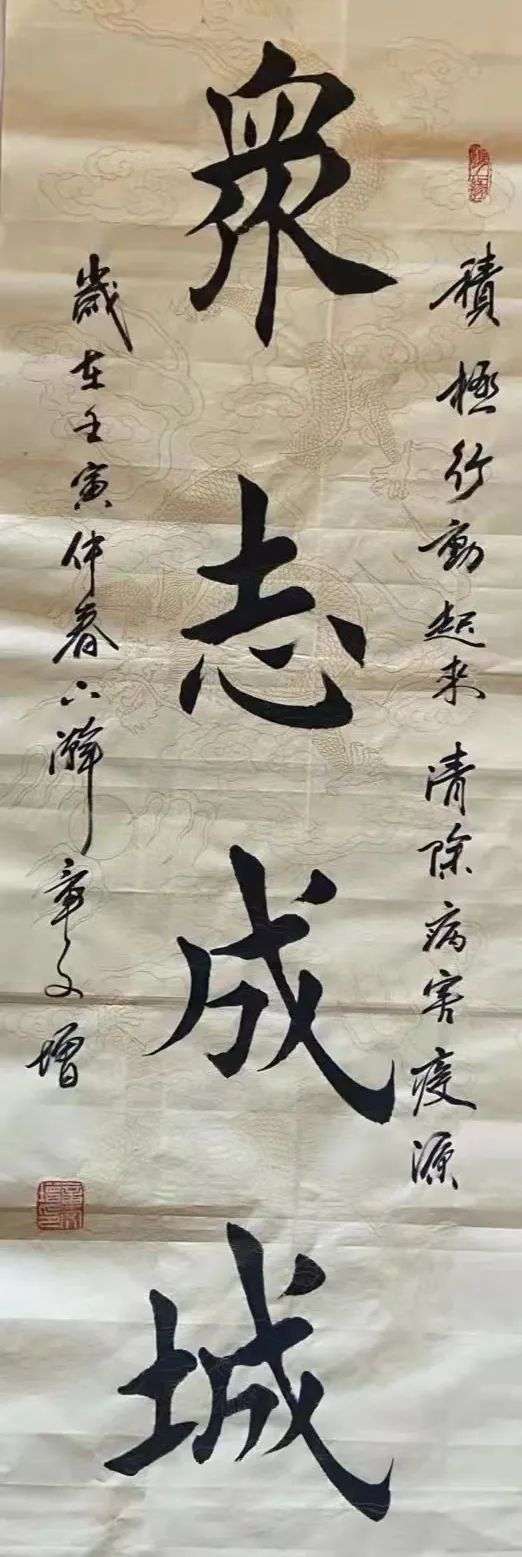 積極行動起来清除病害疫源
衆志成城
歲在壬寅仲春下澣章文增